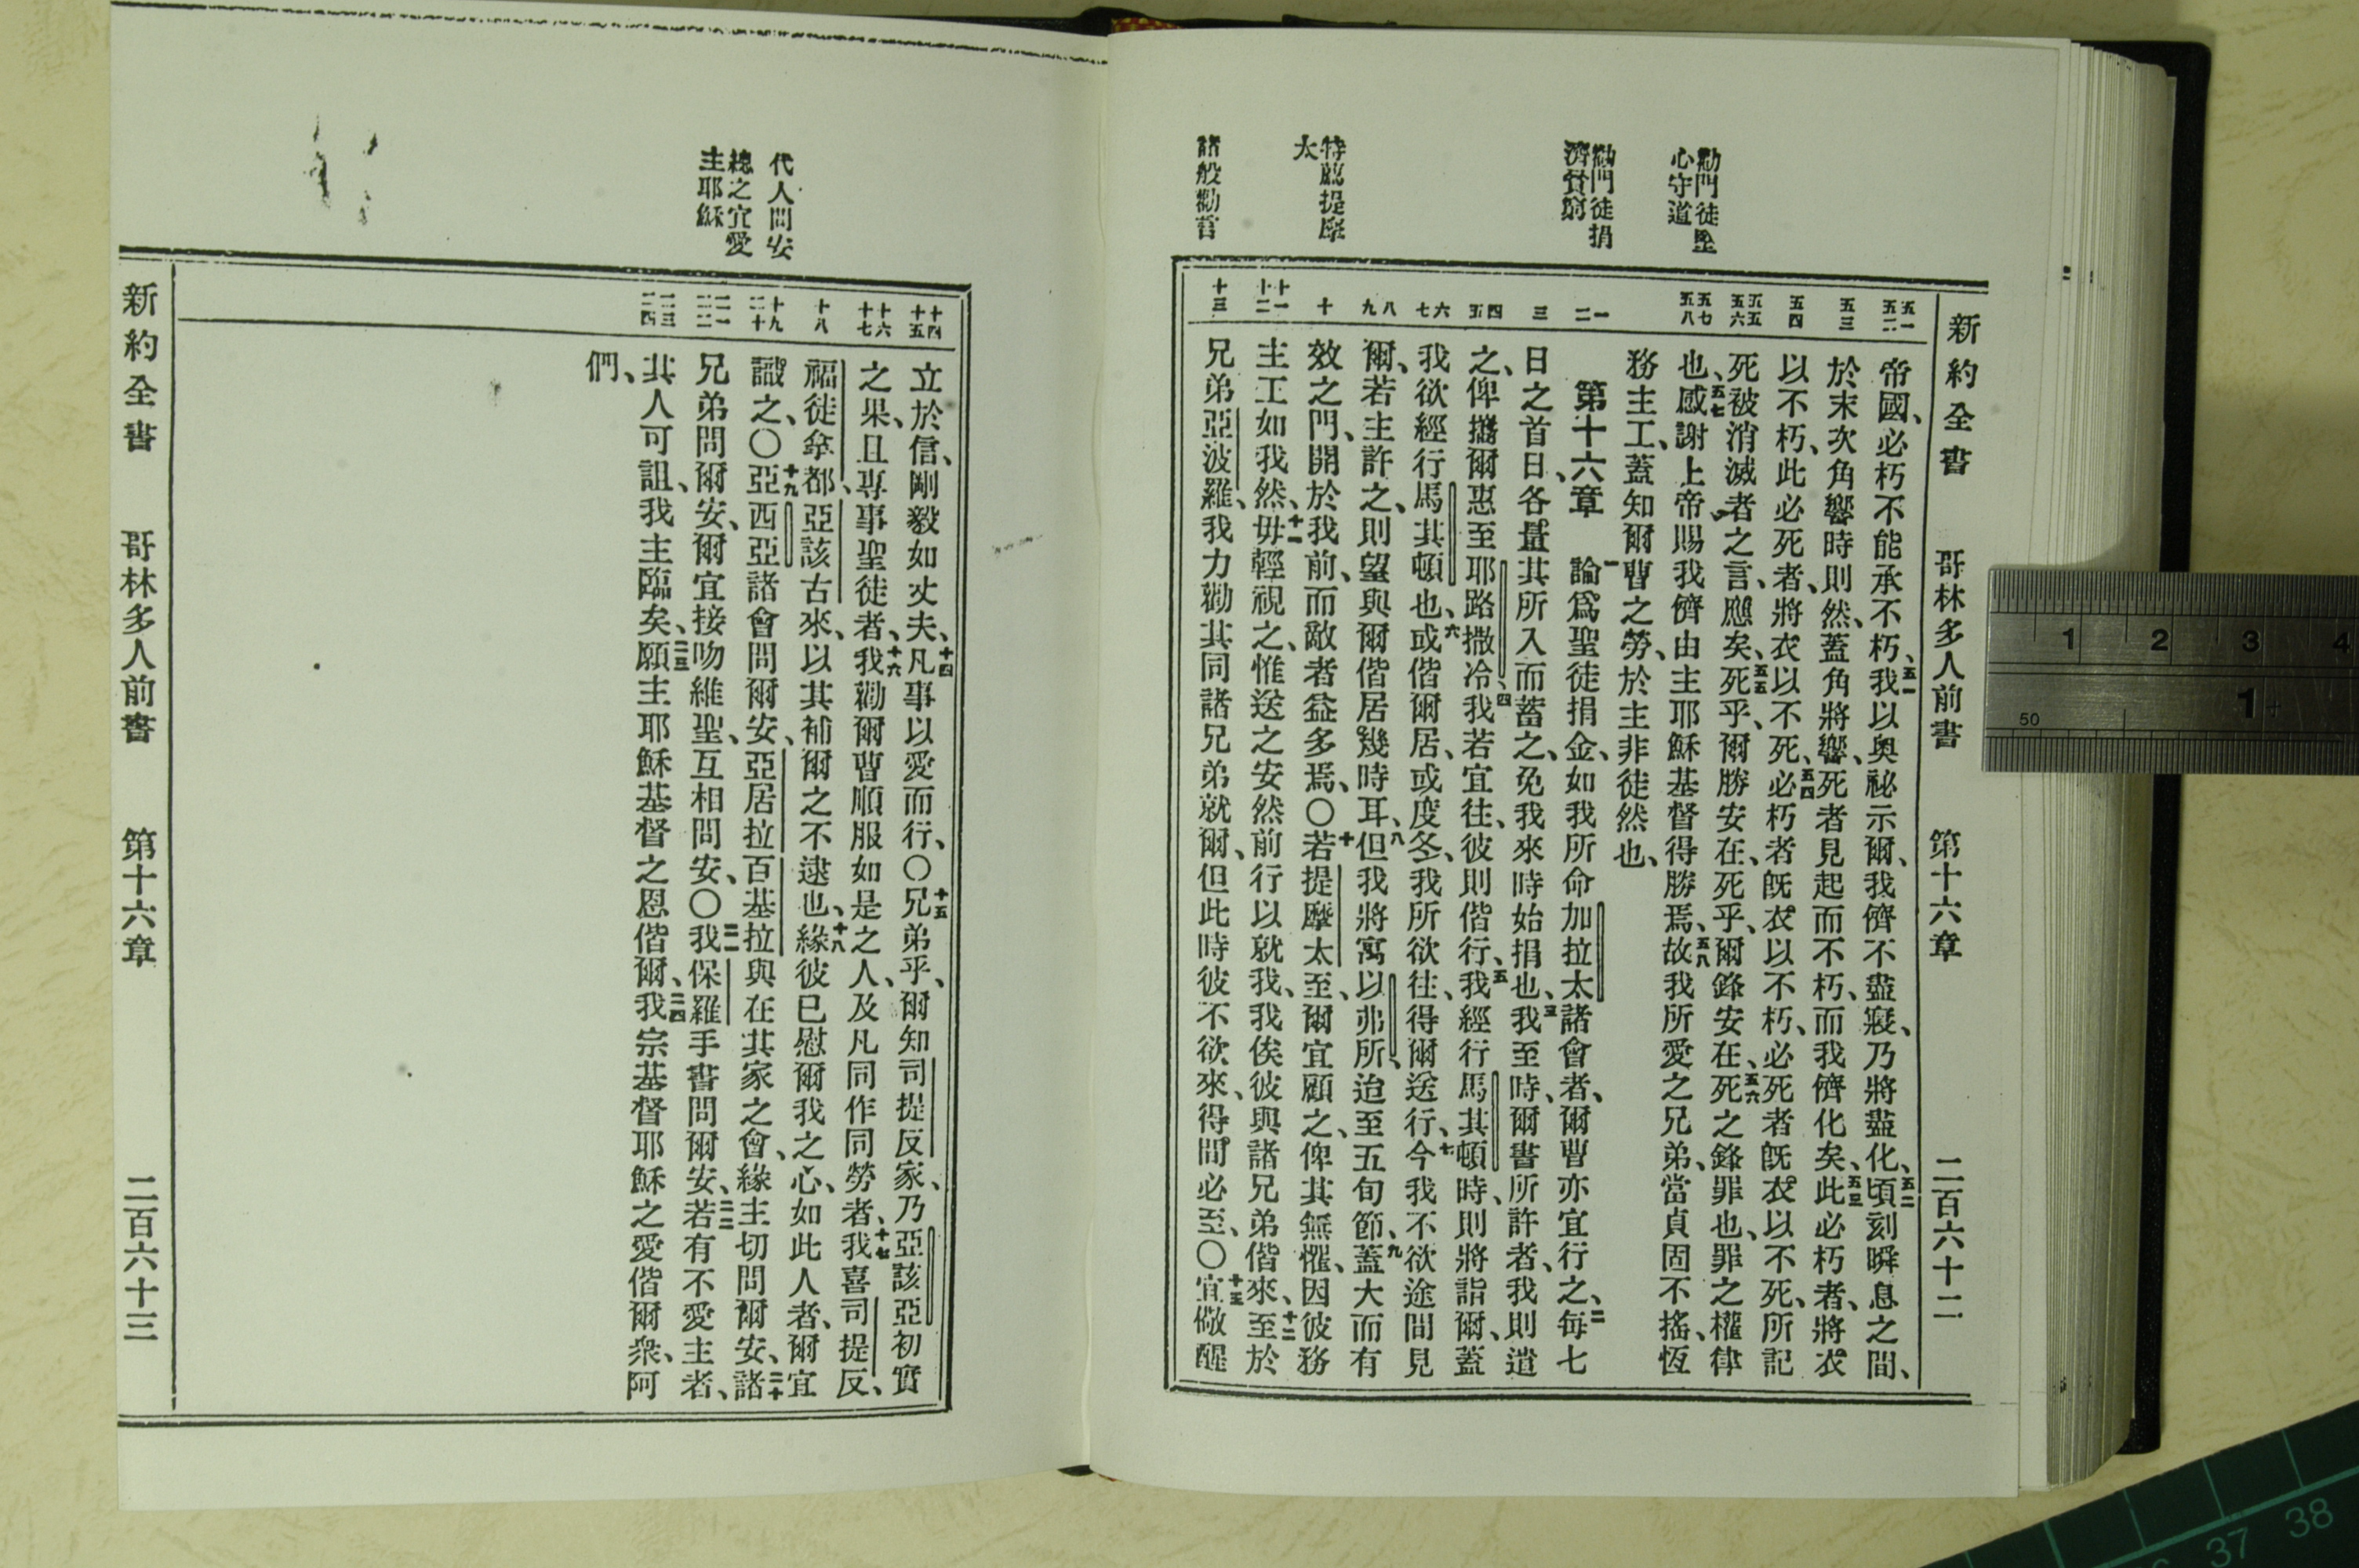 新約全書 哥林多人前書 第十六章 二百六十二
勸門徒堅
心守道
勸門徒捐
濟貧窮
特薦提摩
太
諸般勸言
五一
五二
五三
五四
五五
五六
五七
五八
一
二
三
四
五
六
七
八
九
十
十一
十二
十三
帝國、必朽不能承不朽、五一我以奧祕示爾、我儕不盡寢、乃將盡化、五二頃刻瞬息之間、
於末次角響時則然、蓋角將響、死者見起而不朽、而我儕化矣、五三此必朽者、將衣
以不朽、此必死者、將衣以不死、五四必朽者旣衣以不朽、必死者旣衣以不死、所記
死被消滅者之言、應矣、五五死乎、爾勝安在、死乎、爾鋒安在、五六死之鋒罪也、罪之權律
也、五七感謝上帝、賜我儕由主耶穌基督得勝焉、五八故我所愛之兄弟、當貞固不搖、恆
務主工、蓋知爾曹之勞、於主非徒然也、
第十六章 一論爲聖徒捐金、如我所命加拉太諸會者、爾曹亦宜行之、二每七
日之首日、各量其所入而蓄之、免我來時始捐也、三我至時、爾書所許者、我則遣
之、俾攜爾惠至耶路撒冷、四我若宜往、彼則偕行、五我經行馬其頓時、則將詣爾、蓋
我欲經行馬其頓也、六或偕爾居、或度冬、我所欲往、得爾送行、七今我不欲途間見
爾、若主許之、則望與爾偕居幾時耳、八但我將寓以弗所、迨至五旬節、九蓋大而有
效之門、開於我前、而敵者益多焉、〇十若提摩太至、爾宜顧之、俾其無懼、因彼務
主工如我然、十一毋輕視之、惟送之安然前行以就我、我俟彼與諸兄弟偕來、十二至於
兄弟亞波羅、我力勸其同諸兄弟就爾、但此時彼不欲來、得間必至、〇十三宜儆醒
代人問安
總之宜愛
主耶穌
十四
十五
十六
十七
十八
十九
二十
二一
二二
二三
二四
立於信、剛毅如丈夫、十四凡事以愛而行、〇十五兄弟乎、爾知司提反家、乃亞該亞初實
之果、且專事聖徒者、十六我勸爾曹順服如是之人、及凡同作同勞者、十七我喜司提反、
福徒拿都、亞該古來、以其補爾之不逮也、十八緣彼已慰爾我之心、如此人者、爾宜
識之、〇十九亞西亞諸會問爾安、亞居拉百基拉與在其家之會、緣主切問爾安、二十諸
兄弟問爾安、爾宜接吻維聖、互相問安、〇二一我保羅手書問爾安、二二若有不愛主者、
其人可詛、我主臨矣、二三願主耶穌基督之恩偕爾、二四我宗基督耶穌之愛偕爾衆、阿
們、
新約全書 哥林多人前書 第十六章 二百六十三
1 2 3 4
50 1
37 38